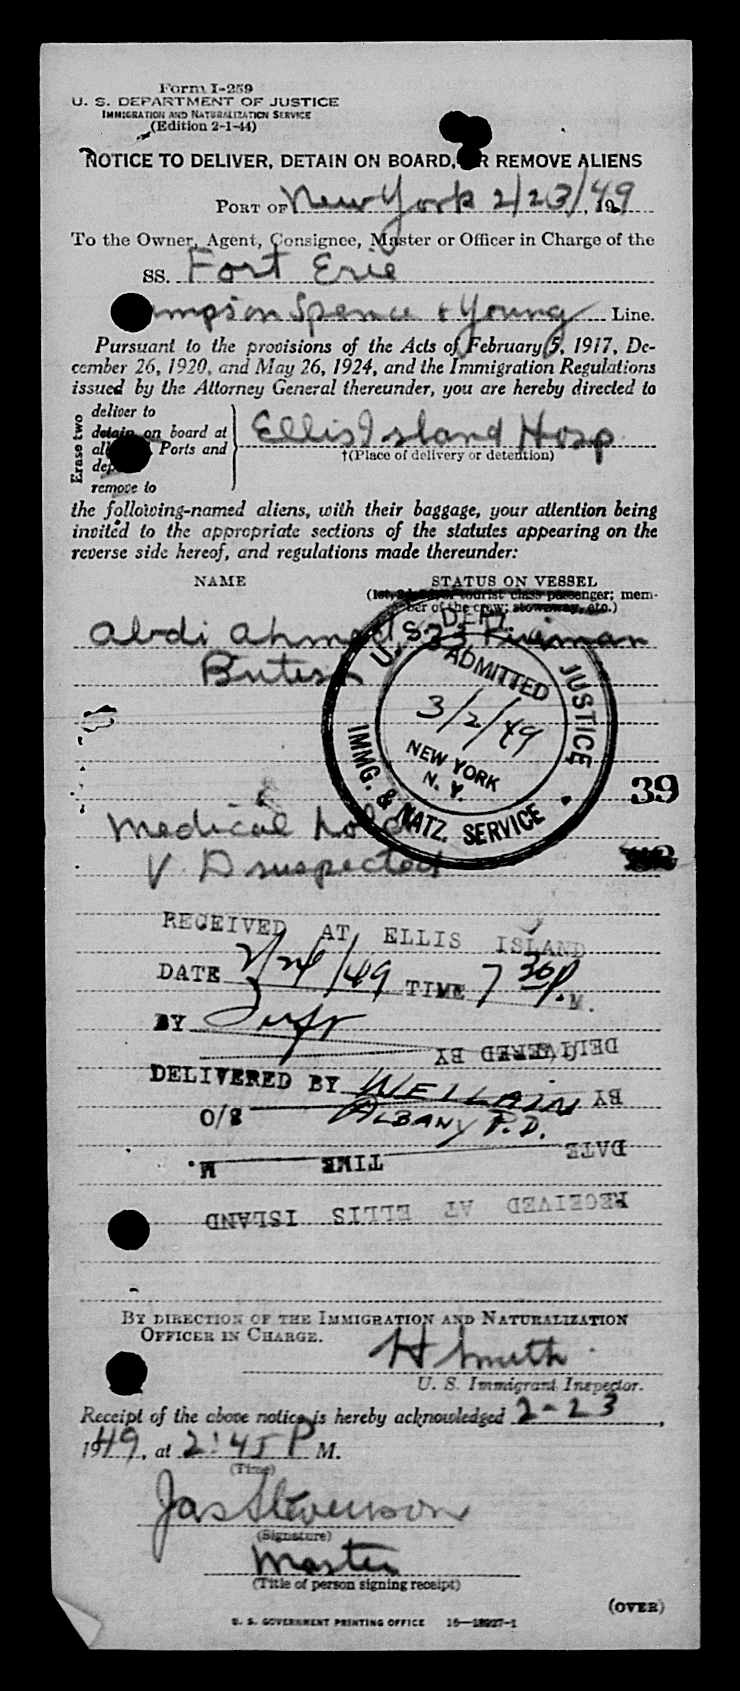 Form I-259
U. S. DEPARTMENT OF JUSTICE
IMMIGRATION AND NATURALIZATION SERVICE
(Edition 2-1-44)
NOTICE TO DELIVER, DETAIN ON BOARD, OR REMOVE ALIENS
PORT OF New York 2/23/49, 19
To the Owner, Agent, Consignee, Master or Officer in Charge of the
SS. Fort Erie
mpson Spence & Young Line.
Pursuant to the provisions of the Acts of February 5, 1917, De-
cember 26, 1920, and May 26, 1924, and the Immigration Regulations
issued by the Attorney General thereunder, you are hereby directed to
Erase two
deliver to
detain on board at
all Ports and
dep
remove to
Ellis Island Hosp
†(Place of delivery or detention)
the following-named aliens, with their baggage, your attention being
invited to the appropriate sections of the statutes appearing on the
reverse side hereof, and regulations made thereunder:
NAME STATUS ON VESSEL
(1st, 2d, 3d, or tourist class passenger; mem-
ber of the crew; stowaway, etc.)
Abdi Ahmed 33 Fireman
British
U. S. DEPT. JUSTICE
ADMITTED
3/2/49
NEW YORK
N. Y.
IMMG. & NATZ. SERVICE
39
Medical hold
V D suspected
RECEIVED AT ELLIS ISLAND
DATE 2/24/49 TIME 7 30 P.M.
BY
DELIVERED BY
DELIVERED BY
BY
S/O ALBANY P.D.
DATE TIME M.
RECEIVED AT ELLIS ISLAND
BY DIRECTION OF THE IMMIGRATION AND NATURALIZATION
OFFICER IN CHARGE.
H Smith
U. S. Immigrant Inspector.
Receipt of the above notice is hereby acknowledged 2-23,
1949, at 2:45 P M.
(Time)
Jas Stevenson
(Signature)
Master
(Title of person signing receipt)
(OVER)
U. S. GOVERNMENT PRINTING OFFICE 16—18927-1